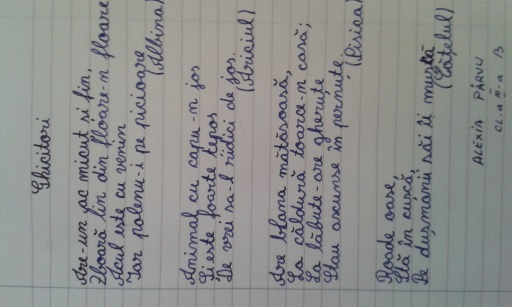 Ghicitori
Are-un ac micut si fin,
Zboară lin din floare-n floare
Acul este cu venin
Iar polenu-i pe picioare
(Albina)
Animal cu capu-n jos
Și este foarte țepos
De vrei sa-l ridici de jos.
(Ariciul)
Are blana mătăsoasă,
La căldură toarce-n casă;
La lăbute-are gheruțe
Stau ascunse în pernuțe
(Pisica)
Roade oase,
Stă în cușcă,
Pe dușmănii săi îi mușcă
(Cățelul)
ALEXIA PÂRVU
CL. a II-a B